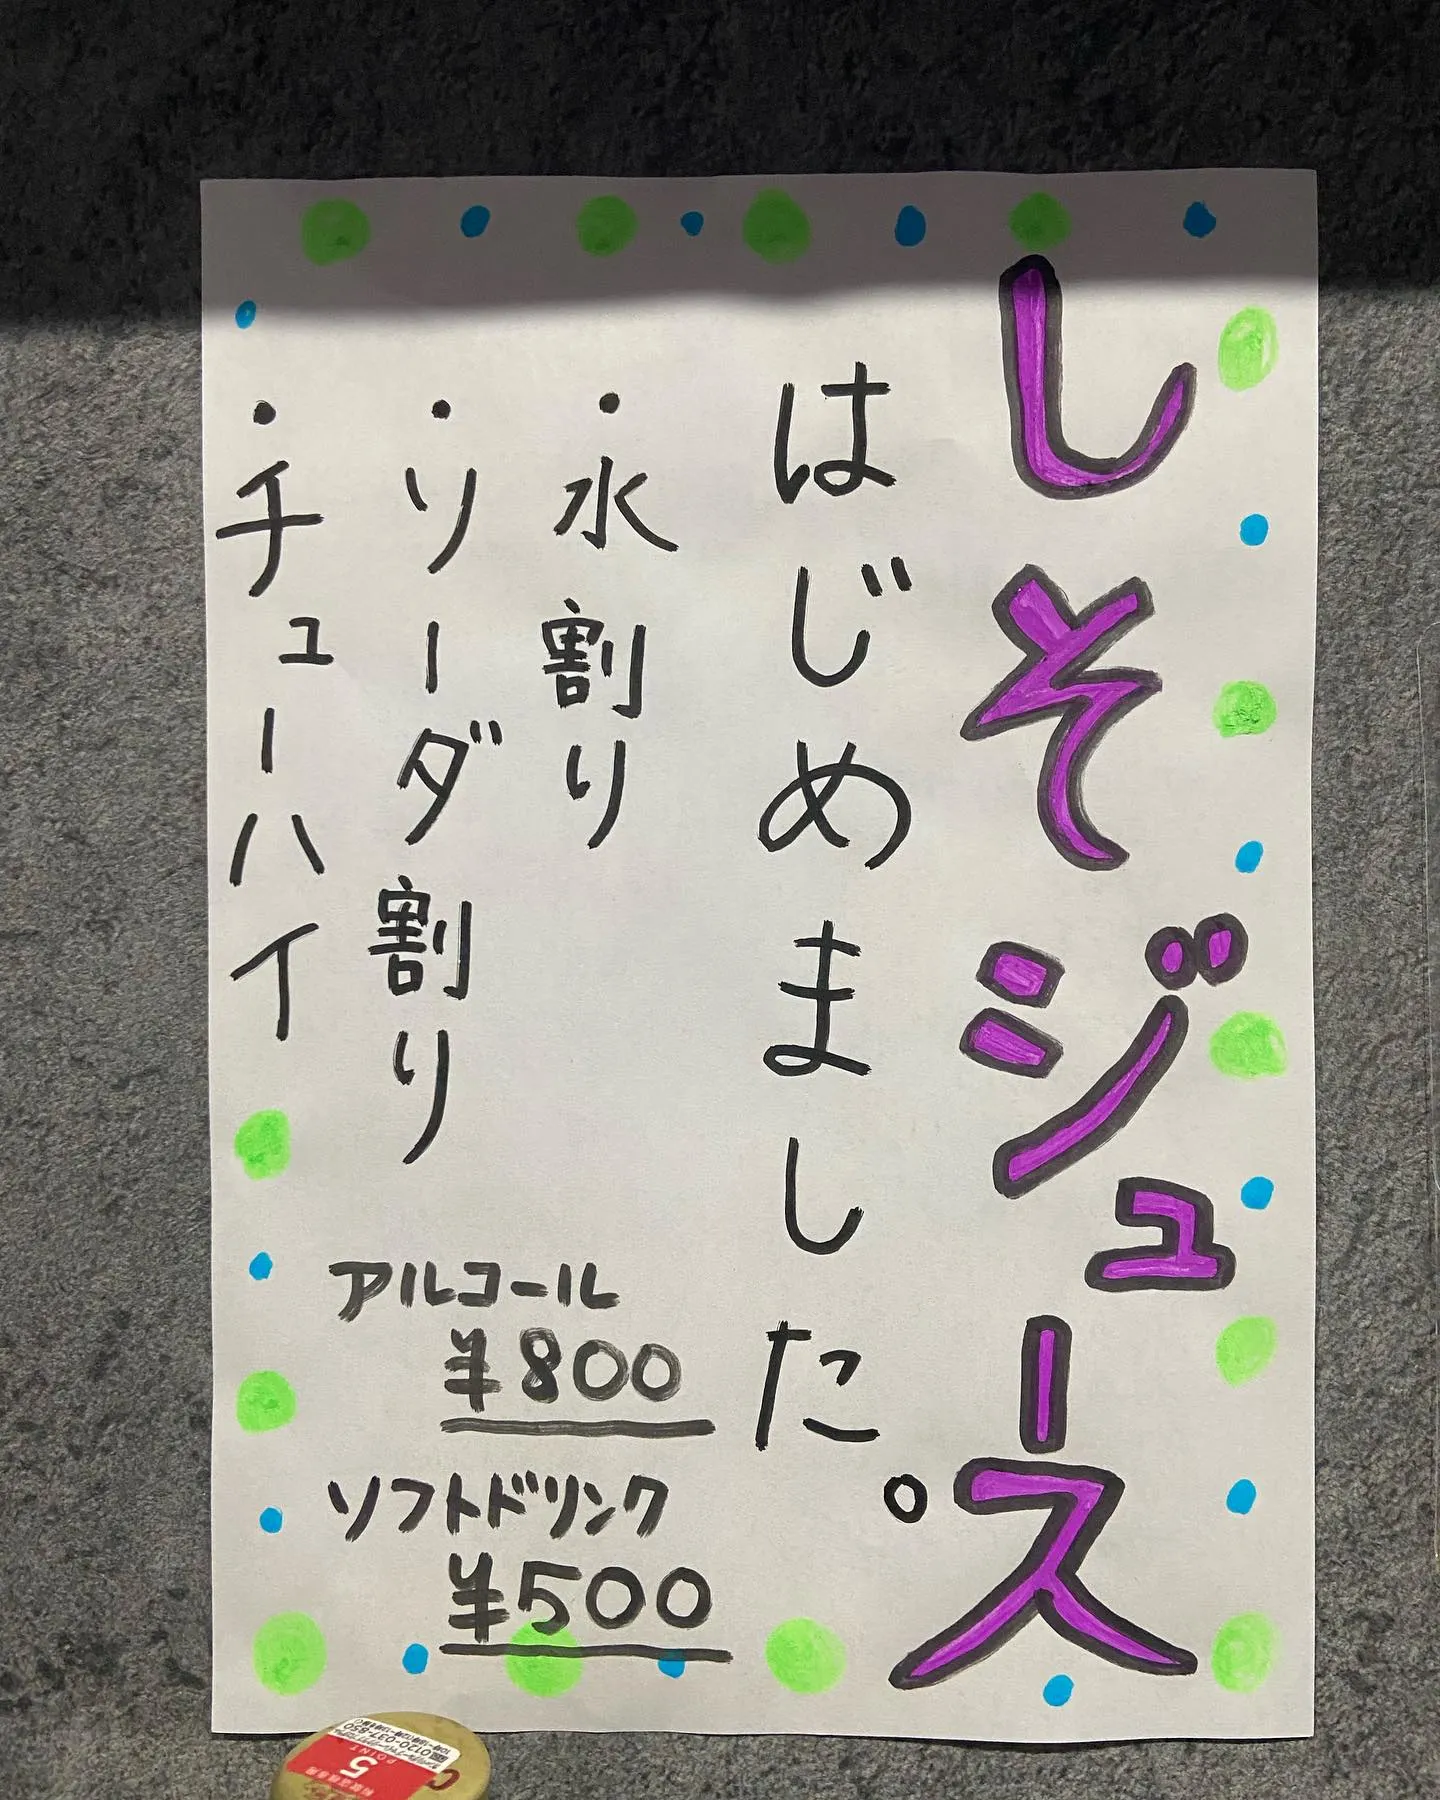 しそジュース
はじめました。
・水割り
・ソーダ割り
・チューハイ
アルコール
¥800
ソフトドリンク
¥500
5
POINT
0120-037-850